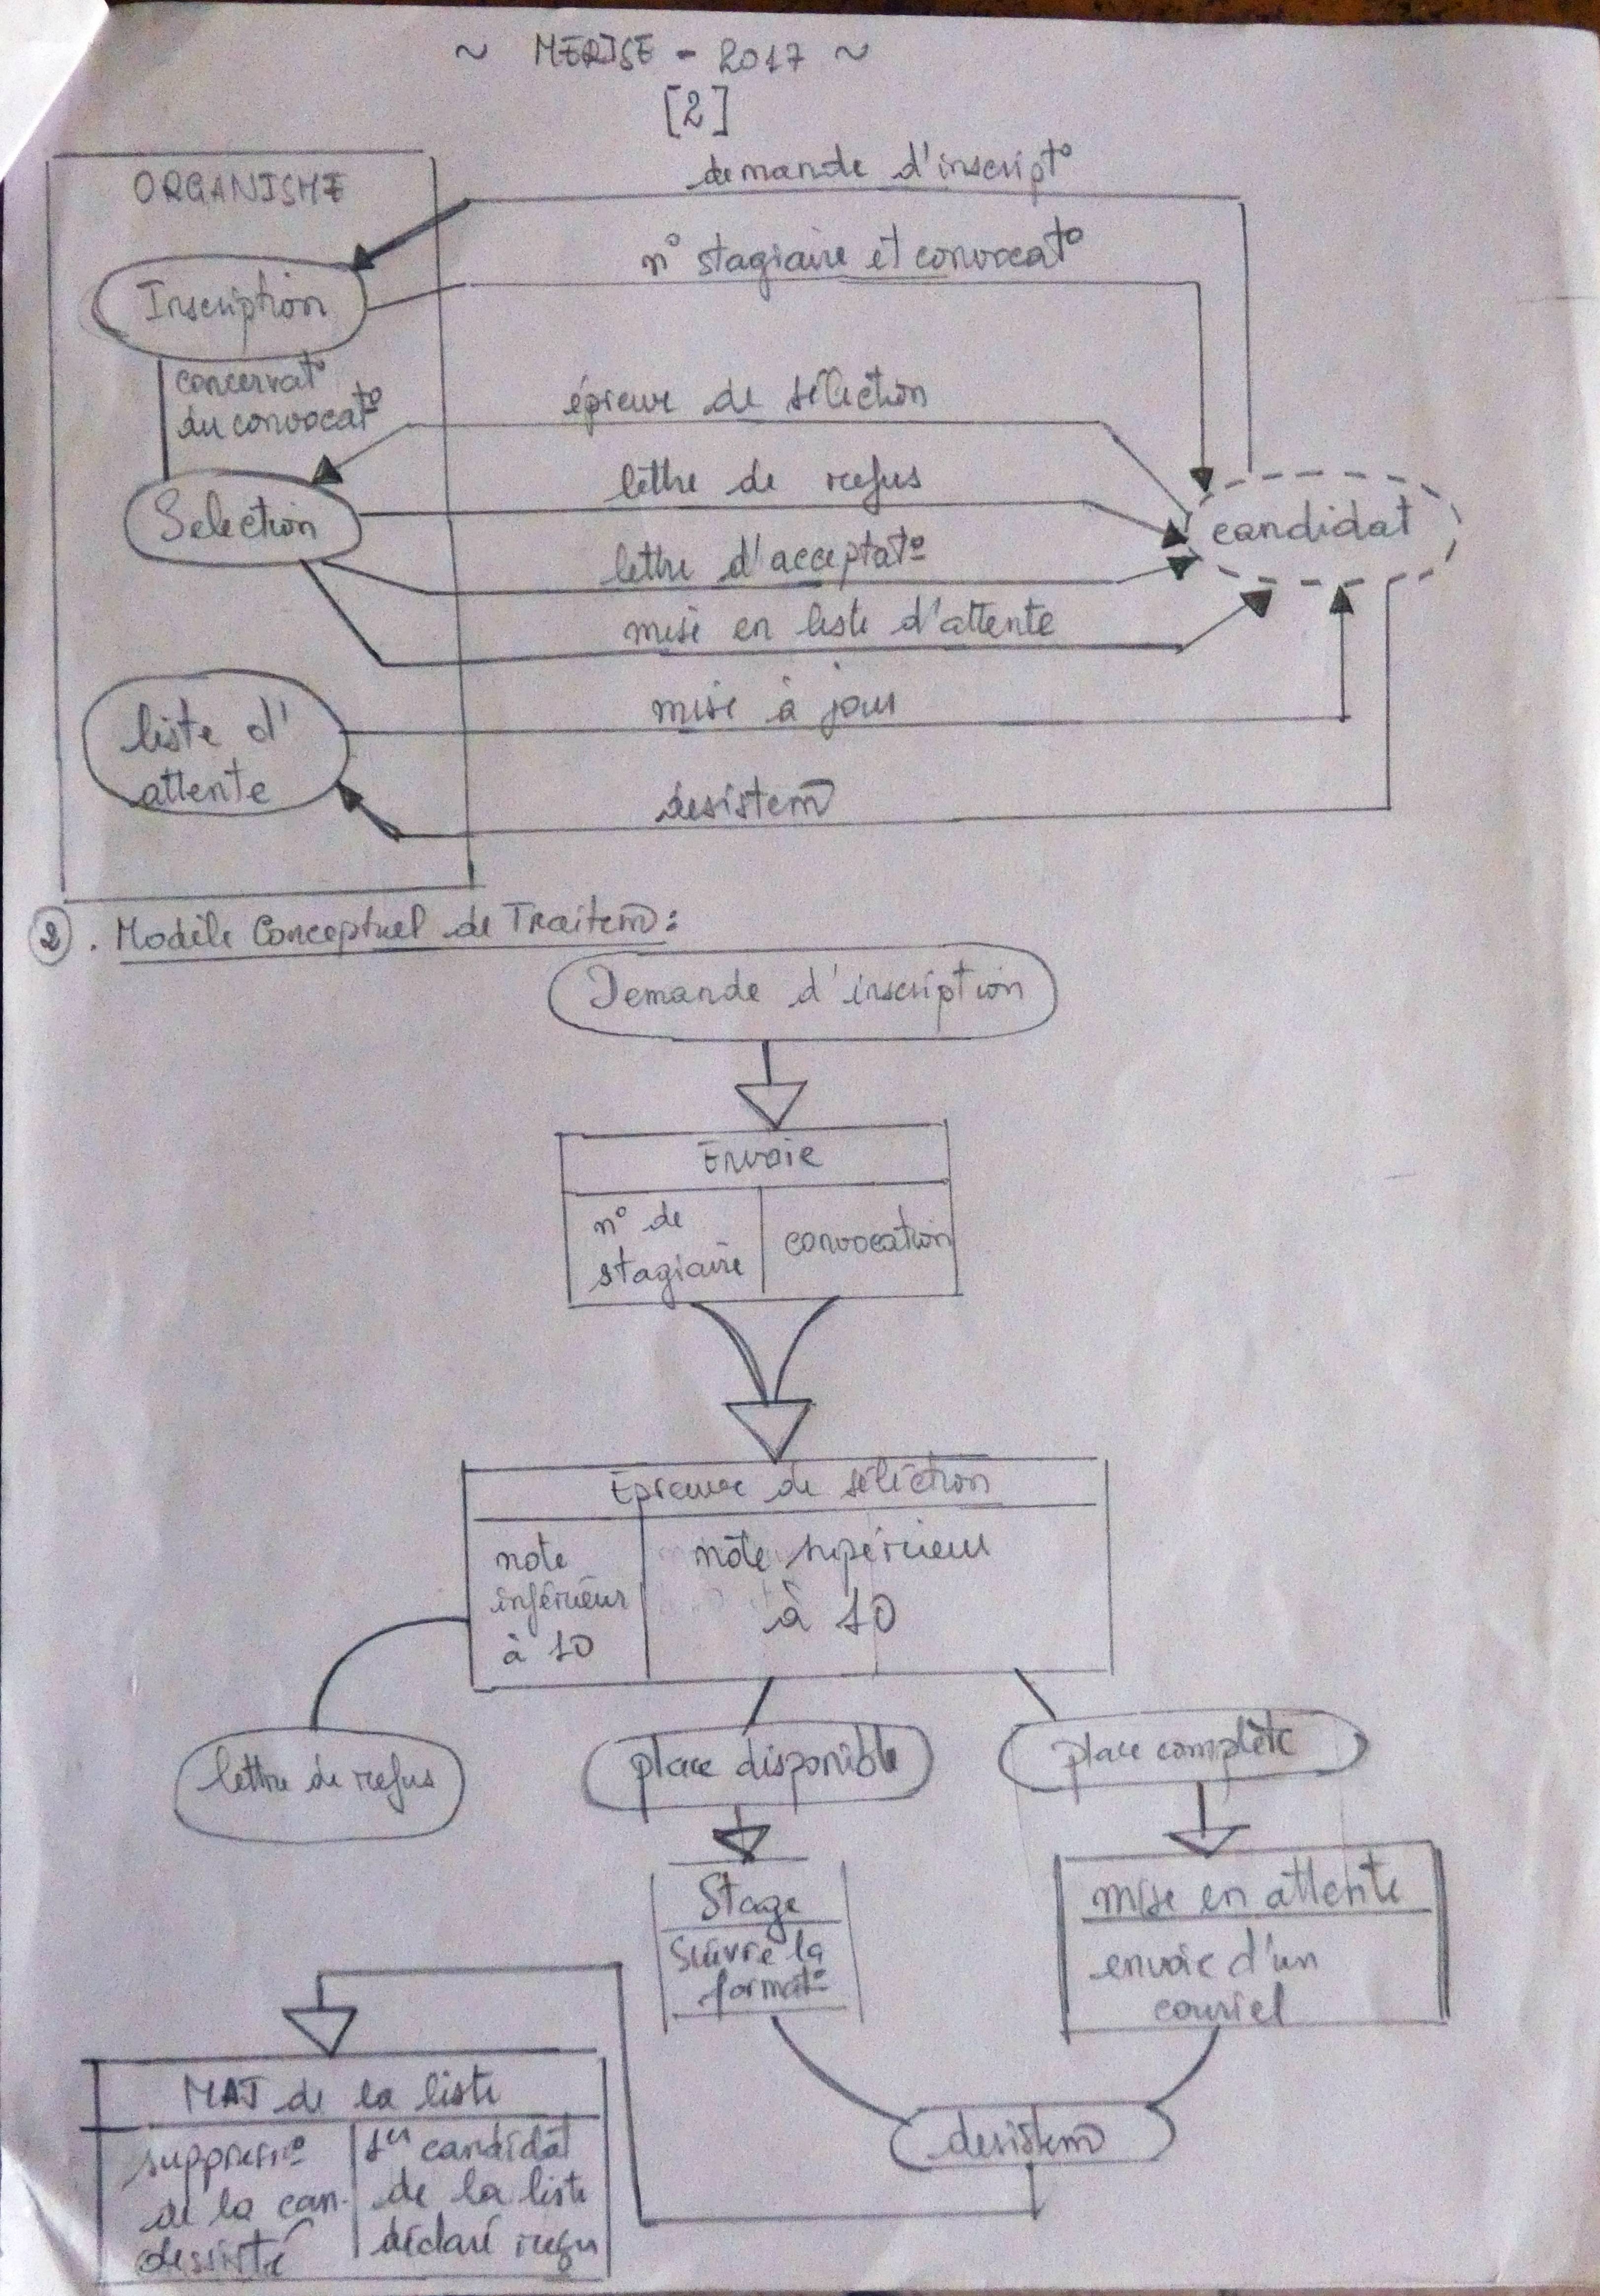 ~ MERISE - 2017 ~
[2]
ORGANISME
demande d'inscript°
n° stagiaire et convocat°
Inscription
concervat°
du convocat°
épreuve de sélection
lettre de refus
Selection
candidat
lettre d'acceptat°
mise en liste d'attente
mise à jour
liste d'
attente
desistem̄
② . Modèle Conceptuel de Traitem̄ :
Demande d'inscription
Envoie
n° de
stagiaire
convocation
Epreuve de séléction
note
inférieur
à 10
note supérieur
à 10
lettre de refus
place disponible
place complète
Stage
suivre la
format°
mise en attente
envoie d'un
couriel
MAJ de la liste
suppress°
de la can-
dessisté
1er candidat
de la liste
déclaré reçu
desistem̄